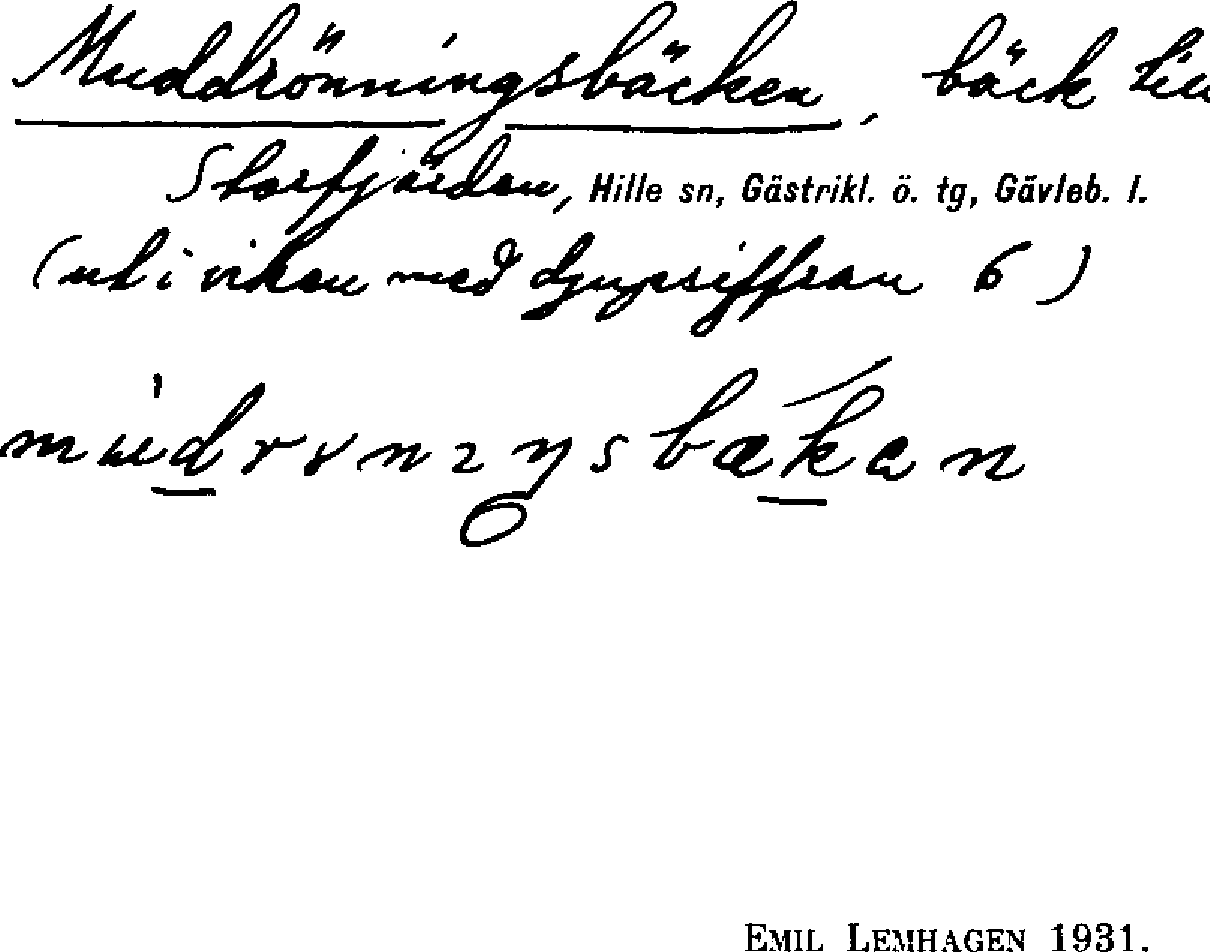 Muddrönningsbäcken, bäck till
Storfjärden, Hille sn, Gästrikl. ö. tg, Gävleb. l.
(ut i viken med djupsiffran 6)
EMIL LEMHAGEN 1931.